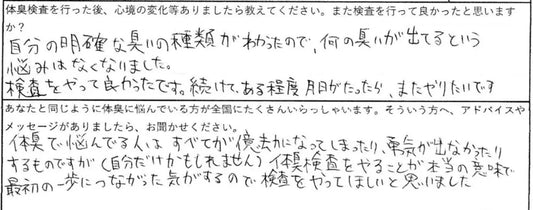 体臭検査を行った後、心境の変化等ありましたら教えてください。また検査を行って良かったと思います
か？
自分の明確な臭いの種類がわかったので、何の臭いが出てるという
悩みはなくなりました。
検査をやって良かったです。続けて、ある程度月日がたったら、またやりたいです
あなたと同じように体臭に悩んでいる方が全国にたくさんいらっしゃいます。そういう方へ、アドバイスや
メッセージがありましたら、お聞かせください。
体臭で悩んでる人は、すべてが億劫になってしまったり、勇気が出なかったり
するものですが（自分だけかもしれません）体臭検査をやることが本当の意味で
最初の一歩につながった気がするので、検査をやってほしいと思いました